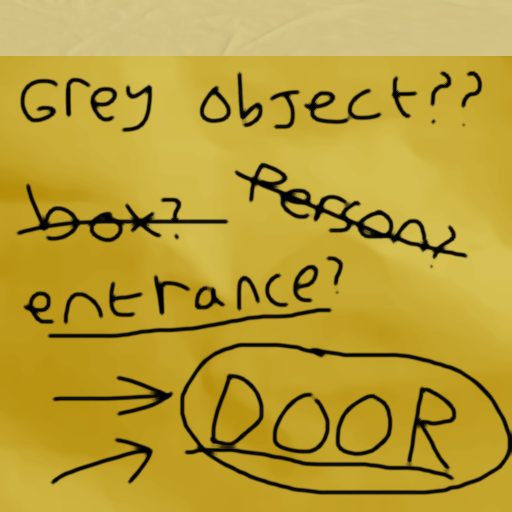 Grey object??
box? Person?
entrance?
DOOR